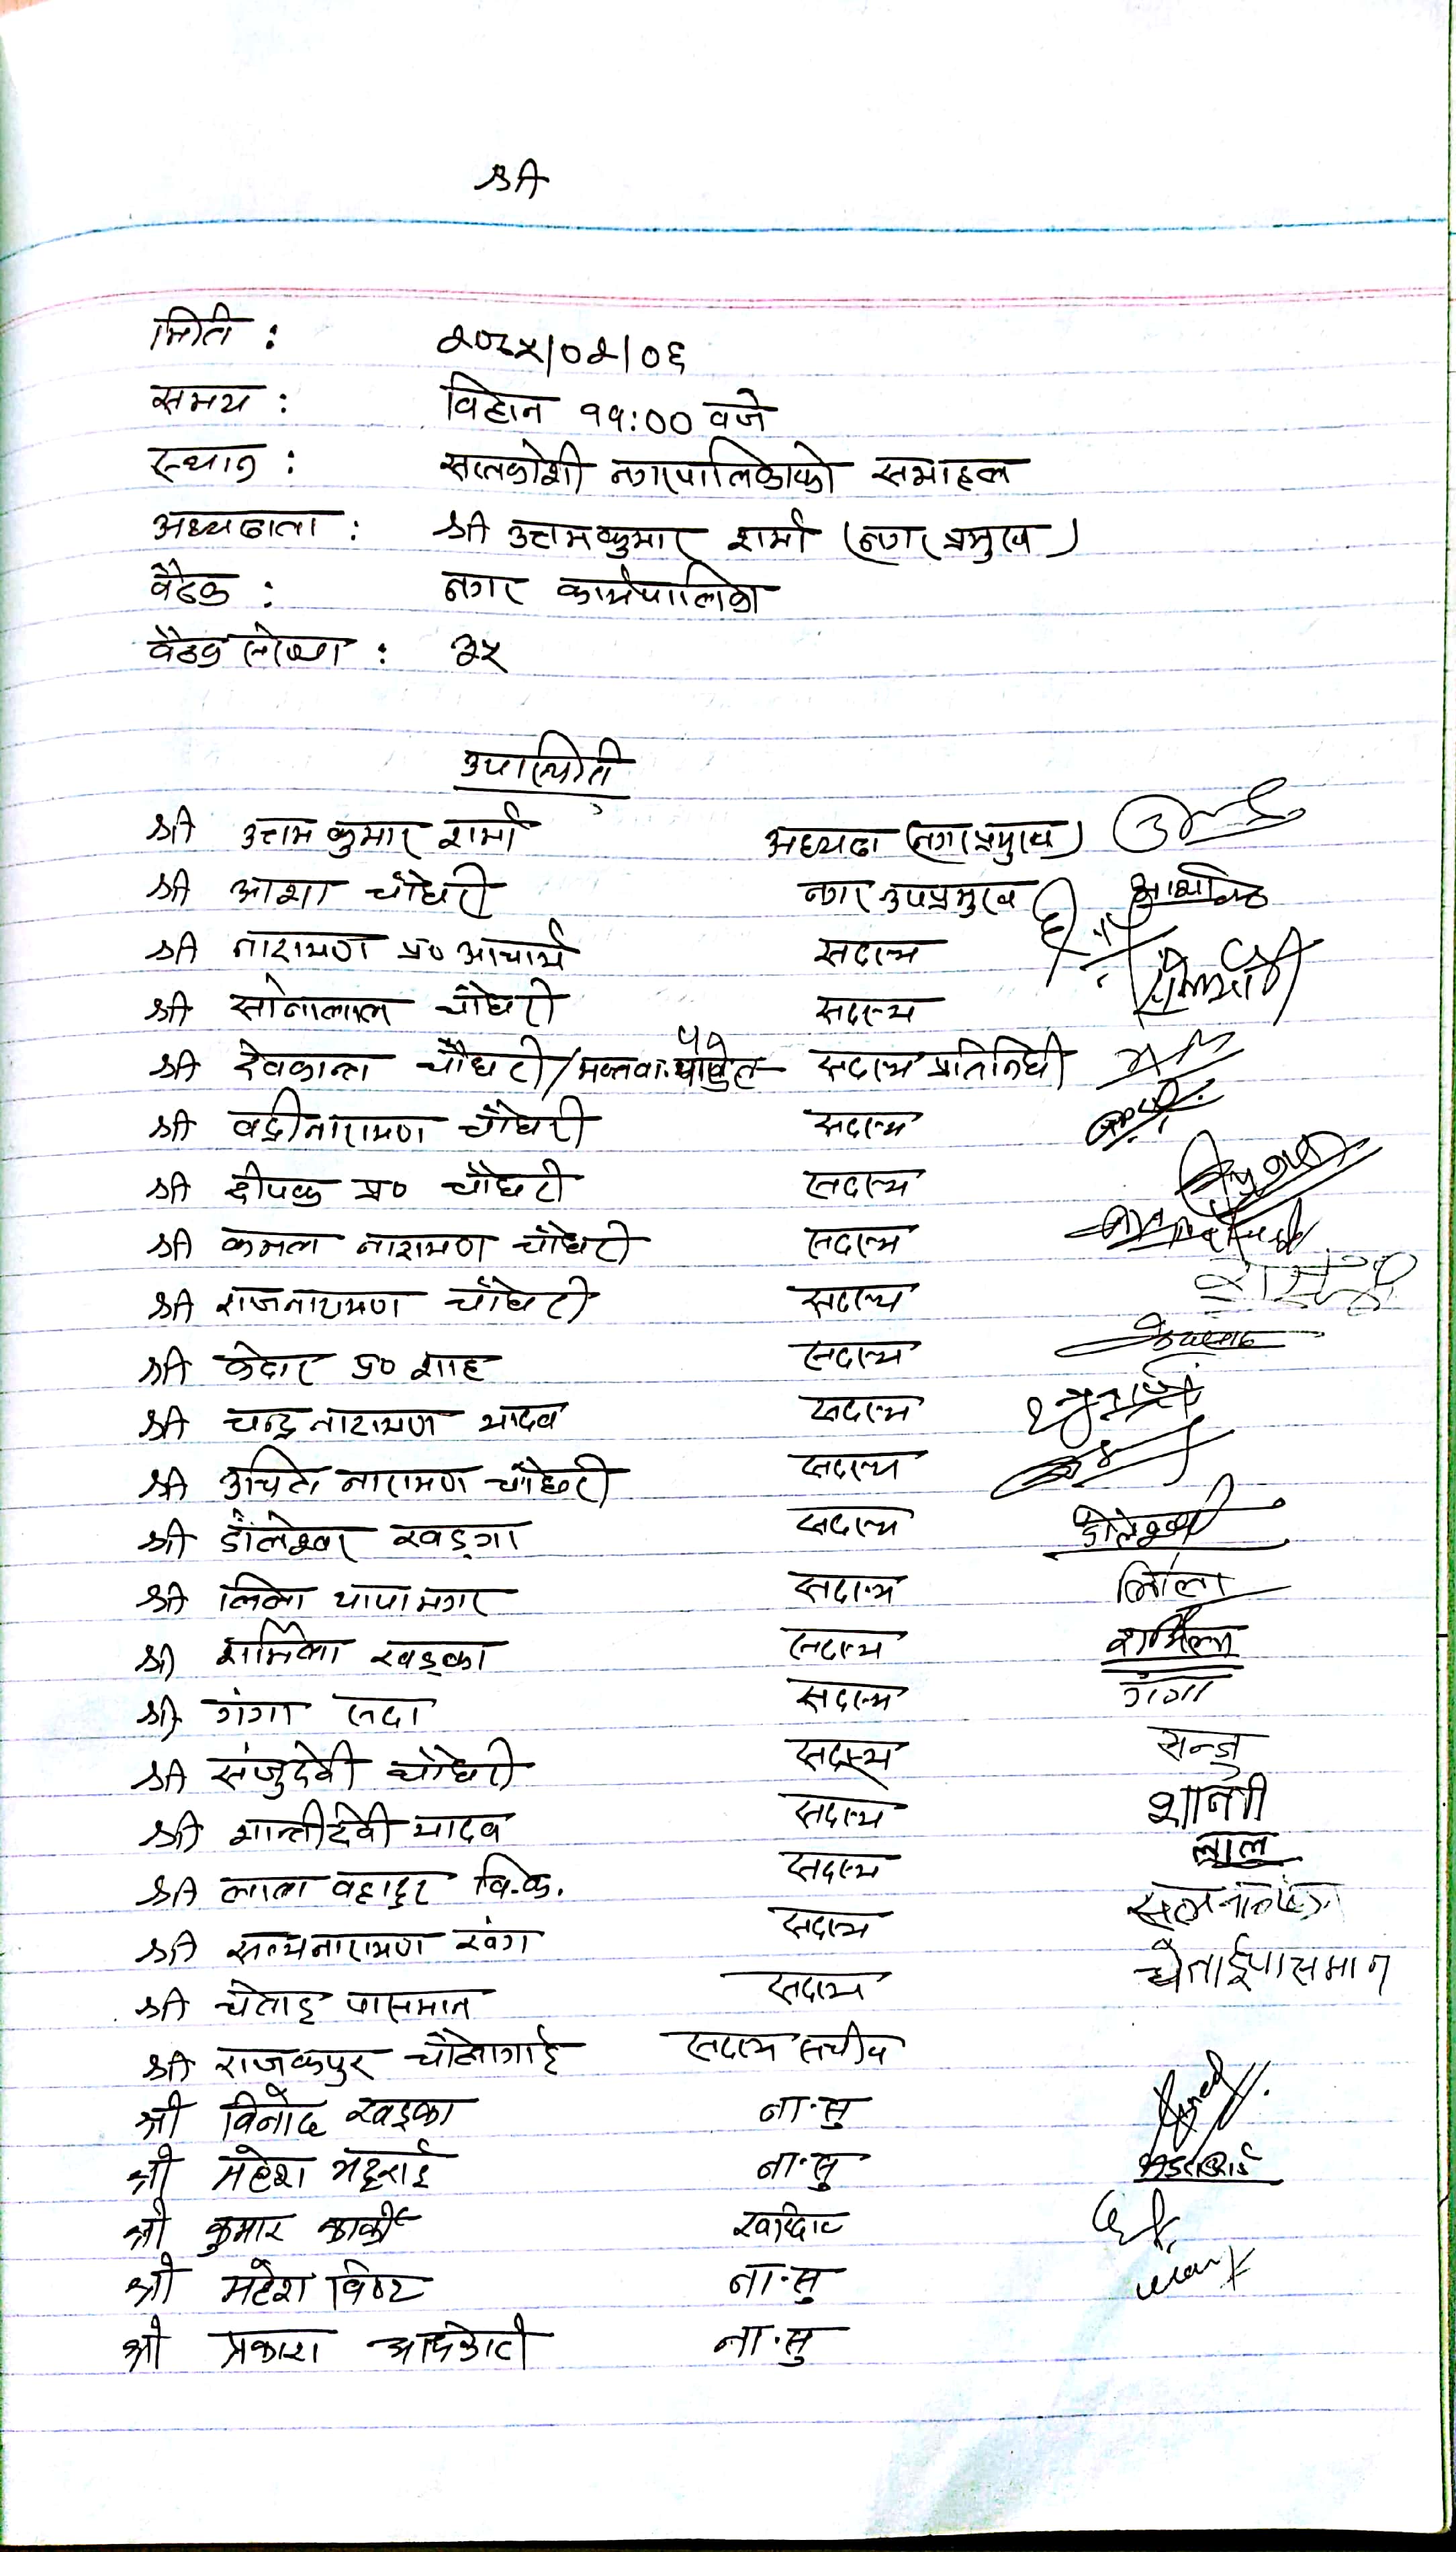 श्री
मिति : २०७५/०२/०६
समय : विहान ११:०० वजे
स्थान : सप्तकोशी नगरपालिकाको सभाहल
अध्यक्षता : श्री उत्तमकुमार शर्मा (नगर प्रमुख)
वैठक : नगर कार्यपालिका
वैठक संख्या : ३५
उपस्थिती
श्री उत्तम कुमार शर्मा अध्यक्ष (नगर प्रमुख)
श्री आशा चौधरी नगर उपप्रमुख
श्री नारायण प्र० आचार्य सदस्य
श्री सोनालाल चौधरी सदस्य
श्री देवकान्त चौधरी / सदस्य प्रतिनिधी
श्री वद्रीनारायण चौधरी सदस्य
श्री दीपक प्र० चौधरी सदस्य
श्री कमल नारायण चौधरी सदस्य
श्री राजनारायण चौधरी सदस्य
श्री केदार प्र० शाह सदस्य
श्री चन्द्र नारायण यादव सदस्य
श्री उचित नारायण चौधरी सदस्य
श्री डोलेश्वर खड्गा सदस्य डोलेश्वर
श्री लिला थापा मगर सदस्य लिला
श्री शर्मिला खड्का सदस्य शर्मिला
श्री गंगा सदा सदस्य गंगा
श्री संजुदेवी चौधरी सदस्य सन्जु
श्री शान्तीदेवी यादव सदस्य शान्ती
श्री लाल वहादुर वि.क. सदस्य लाल
श्री सत्यनारायण खंग सदस्य
श्री चेताइ पासमान सदस्य चेताईपासमान
श्री राजकपुर चौलागाई सदस्य सचीव
श्री विनोद खड्का ना.सु
श्री महेश भट्टराई ना.सु
श्री कुमार कार्की
श्री महेश विष्ट ना.सु
श्री प्रकाश अधिकारी ना.सु